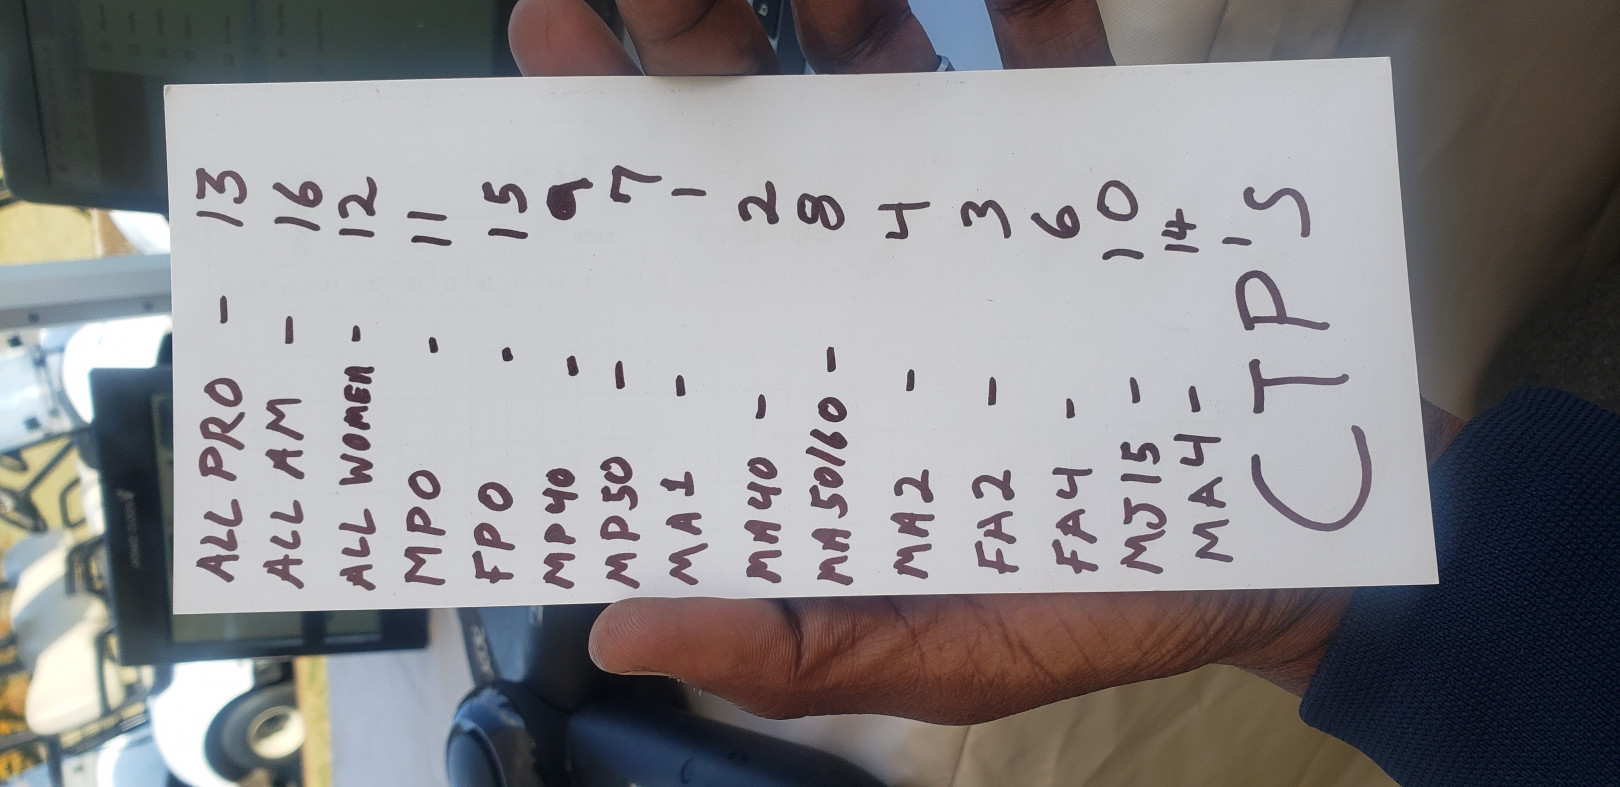 ALL PRO - 13
ALL AM - 16
ALL WOMEN - 12
MPO - 11
FPO - 15
MP40 - 9
MP50 - 7
MA1 - 1
MA40 - 2
MA50/60 - 8
MA2 - 4
FA2 - 3
FA4 - 6
MJ15 - 10
MA4 - 14
CTP'S